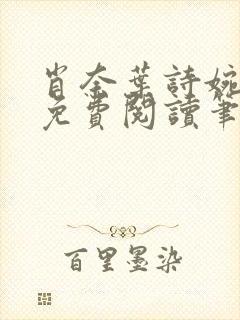 肖奈葉詩婉
免費閱讀筆
百里墨染